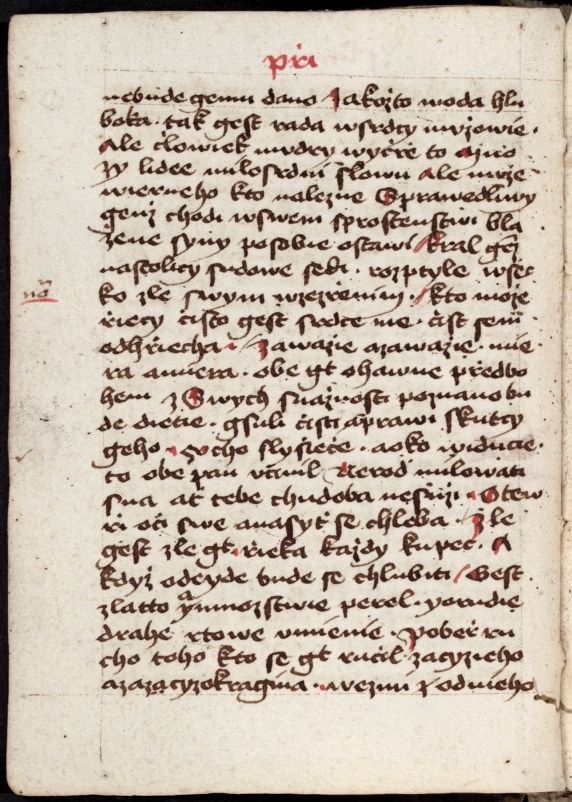 při
nebude gemu dano Jakožto woda hlu
boka · tak gest rada wsrdcy mužowie ·
Ale člowiek mudry wyčrě to
lidee milosrdni slowu Ale muže
wierneho kto nalezne Sprawedliwy
genž chodi wswem sprostenstwi bla
žene syny posobie ostawi Kral
nastolicy sudowe sedi · rozptyle wše
ko zle swym wzezřenim · Kto može
řiecy čisto gest srdce me · čist sem
odhřiecha · Zawažie azawažie · mie
ra amiera · obe gt ohawne předbo
hem z Swych snažnosti poznano bu
de dietie · gsuli čisti aprawi skutcy
geho · Vcho slyšiece · aoko widucie ·
to obe pan včinil Nerod milowati
sna ať tebe chudoba nesuži · Otew
ři oči swe anasyť se chleba · Zle
gest zle gt · řieka každy kupec · A
když odeyde bude se chlubiti Gest
zlatto ymnozstwie perel · yorudie
drahe rtowe vmienie · Pobeř ru
cho toho kto se gtručil zacyzieho
azazacyzokragina · wezmi z odnieho